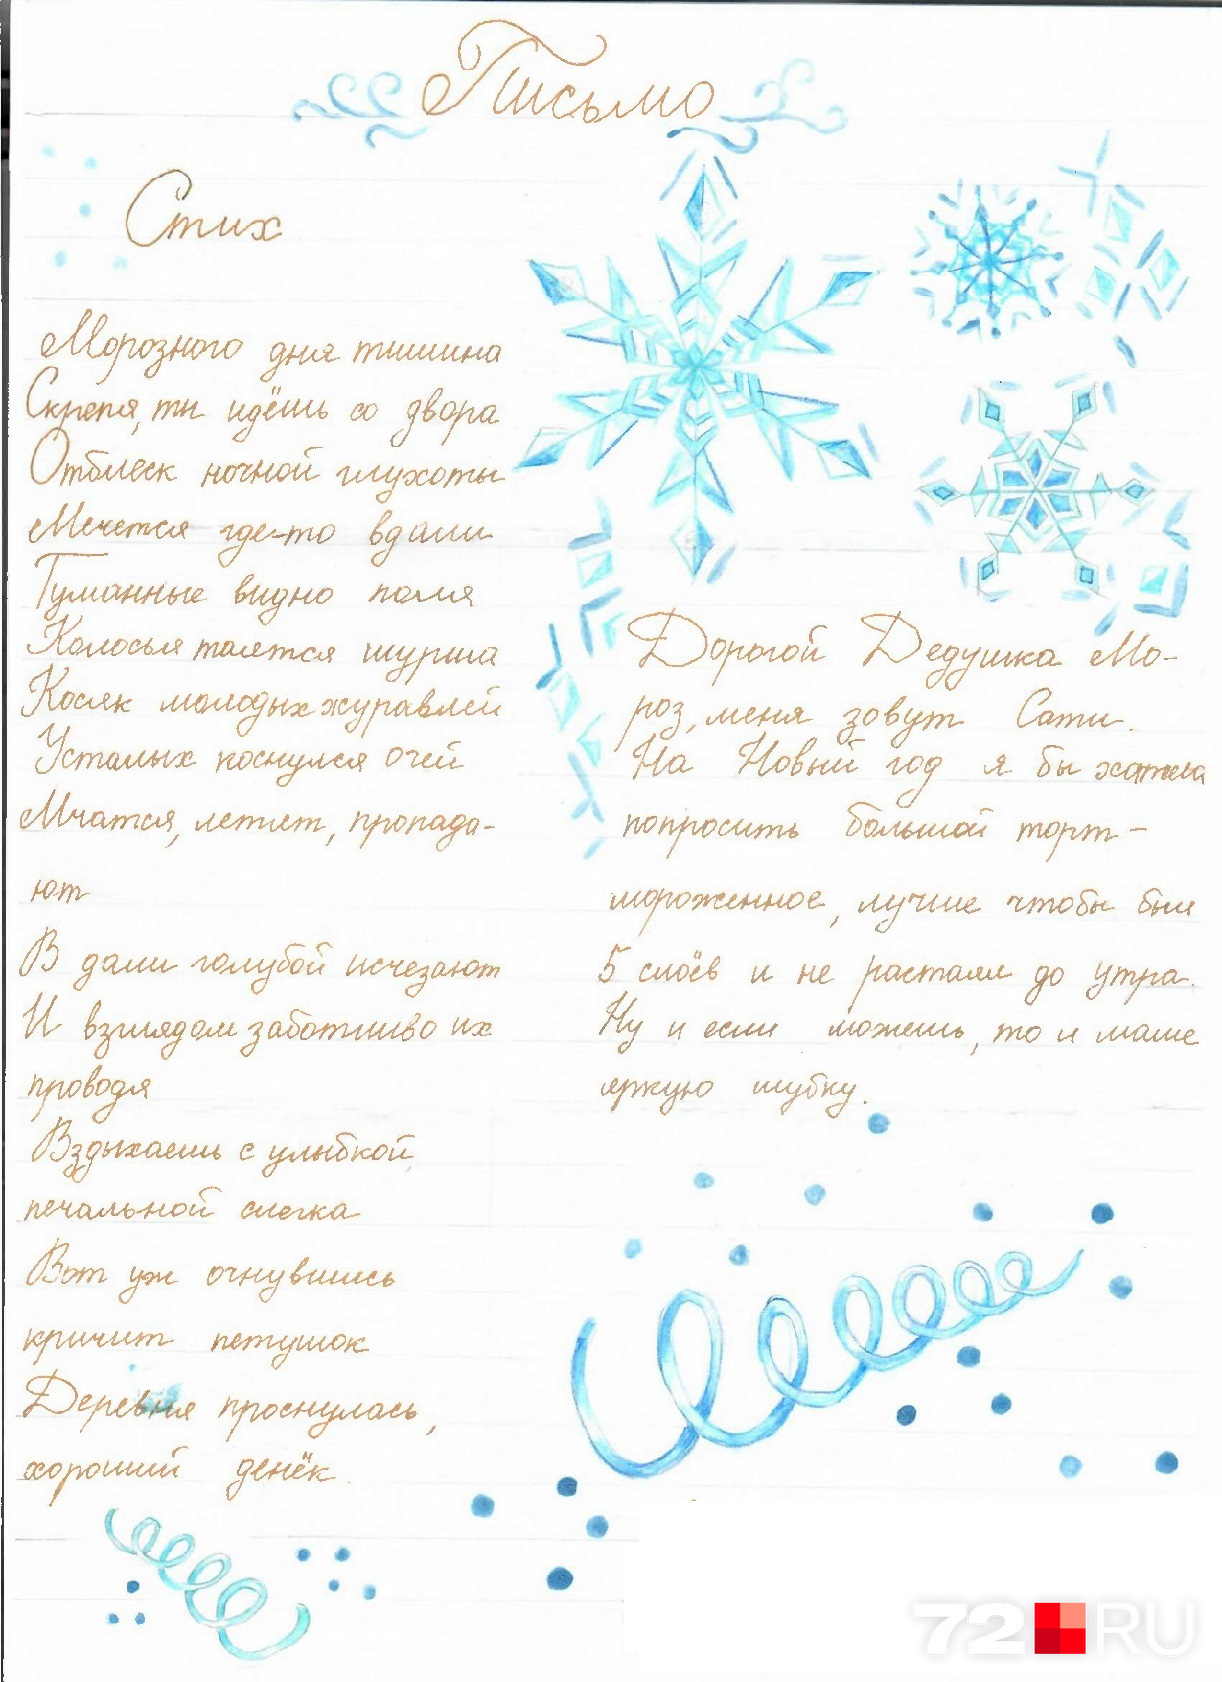 Письмо
Стих
Морозного дня тишина
Скрепя, ты идёшь со двора
Отблеск ночной глухоты
Мечется где-то вдали
Туманные видно поля
Колосья таятся шурша
Косяк молодых журавлей
Усталых коснулся очей
Мчатся, летят, пропада-
ют
В дали голубой исчезают
И взглядом заботливо их
проводя
Вздыхаешь с улыбкой
печальной слегка
Вот уж очнувшись
кричит петушок
Деревня проснулась,
хороший денёк.
Дорогой Дедушка Мо-
роз, меня зовут Сати.
На Новый год я бы хотела
попросить большой торт-
мороженное, лучше чтобы был
5 слоёв и не растаял до утра.
Ну и если можешь, то и маме
яркую шубку.
72 RU